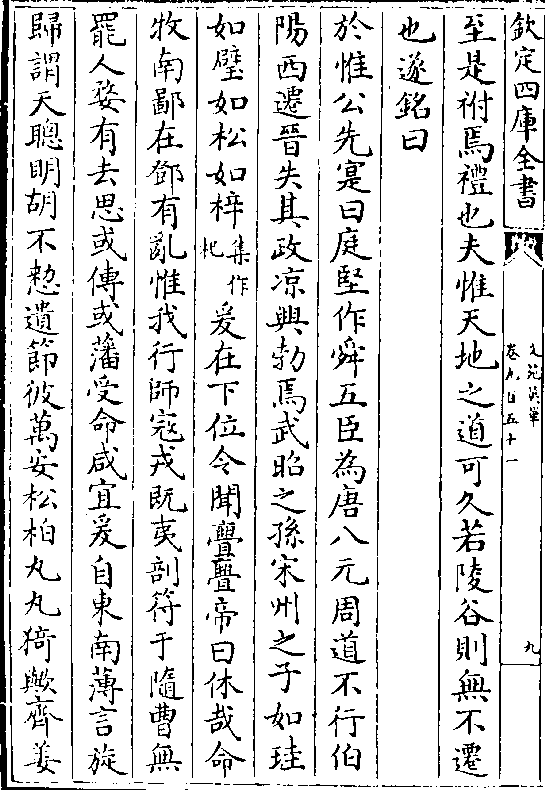 欽定四庫全書
文苑英華
卷九百五十一
九
至是祔焉禮也夫惟天地之道可久若陵谷則無不遷
也遂銘曰
於惟公先寔曰庭堅作舜五臣為唐八元周道不行伯
陽西遷晉失其政凉興勃焉武昭之孫宋州之子如珪
如璧如松如梓集作杞爰在下位令聞亹亹帝曰休哉命
牧南鄙在鄧有亂惟我行師寇戎既夷剖符于隨曹無
罷人婺有去思或傳或藩受命咸宜爰自東南薄言旋
歸謂天聰明胡不憖遺節彼萬安松柏丸丸猗歟齊姜